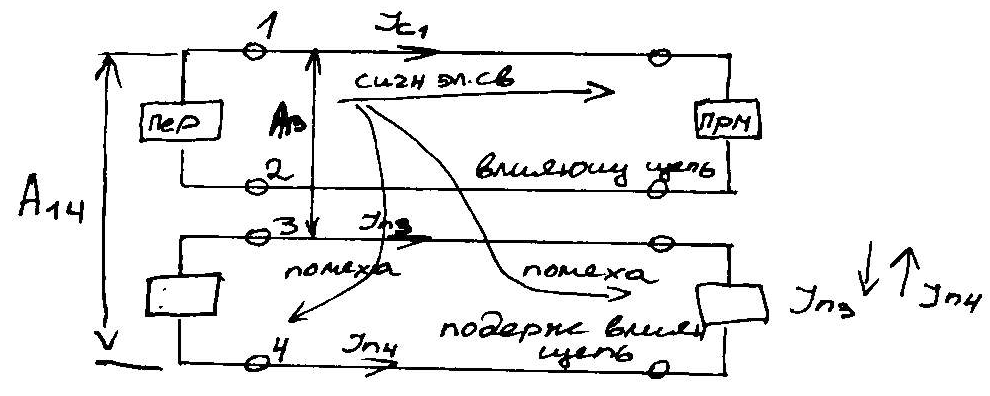 1 Jc1
сигн эл.св
пер
A13
прм
2
влияющ цепь
A14
3 Jп3
помеха
помеха
Jп3 Jп4
4 Jп4
подверж влиян
цепь